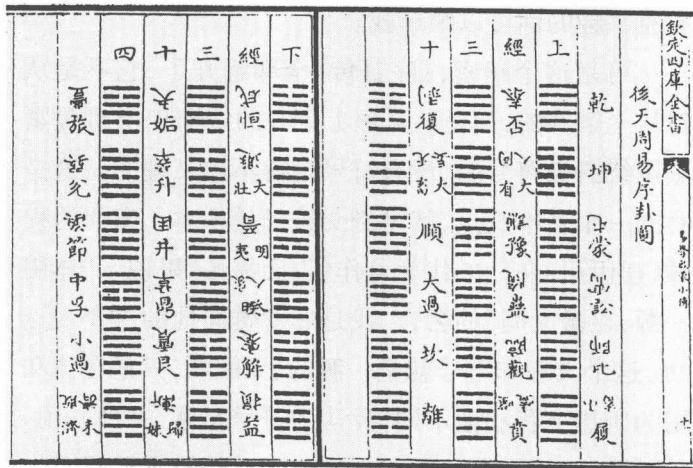 欽定四庫全書
後天周易序卦圖
乾 坤 屯蒙 需訟 師比 小畜 履
上
經 泰否 同人 大有 謙豫 隨蠱 臨觀 噬嗑 賁
三
十 剝復 无妄 大畜 頤 大過 坎 離
下
經 咸恒 遯 大壯 晉 明夷 家人 睽 蹇解 損益
三
十 夬姤 萃升 困井 革鼎 震艮 漸 歸妹
四
豐旅 巽兌 渙節 中孚 小過 既濟 未濟